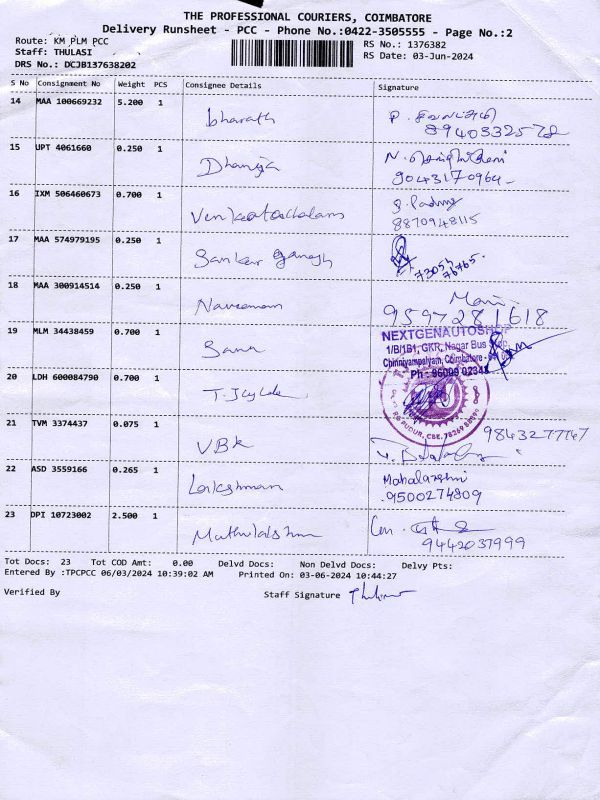 THE PROFESSIONAL COURIERS, COIMBATORE
Delivery Runsheet - PCC - Phone No.:0422-3505555 - Page No.:2
Route: KM PLM PCC RS No.: 1376382
Staff: THULASI RS Date: 03-Jun-2024
DRS No.: DCJB137638202
S No Consignment No Weight PCS Consignee Details Signature
14 MAA 100669232 5.200 1 bharath
8940332578
15 UPT 4061660 0.250 1 Dhanuja
9043170964
16 IXM 506460673 0.700 1 Venkatachalam
8870948115
17 MAA 574979195 0.250 1 Sankar ganesh
73054
76765
18 MAA 300914514 0.250 1 Mani
9597281618
19 MLM 34438459 0.700 1
NEXTGENAUTOSHOP
1/B/1B1, GKR, Nagar Bus Stop,
Chinniyampalyam, Coimbatore -
Ph : 96009 02348
20 LDH 600084790 0.700 1
21 TVM 3374437 0.075 1 VBK 9843277747
22 ASD 3559166 0.265 1 Lakshman Mahalakshmi
9500274809
23 DPI 10723002 2.500 1 Muthulakshmi
9442037999
Tot Docs: 23 Tot COD Amt: 0.00 Delvd Docs: Non Delvd Docs: Delvy Pts:
Entered By :TPCPCC 06/03/2024 10:39:02 AM Printed On: 03-06-2024 10:44:27
Verified By Staff Signature